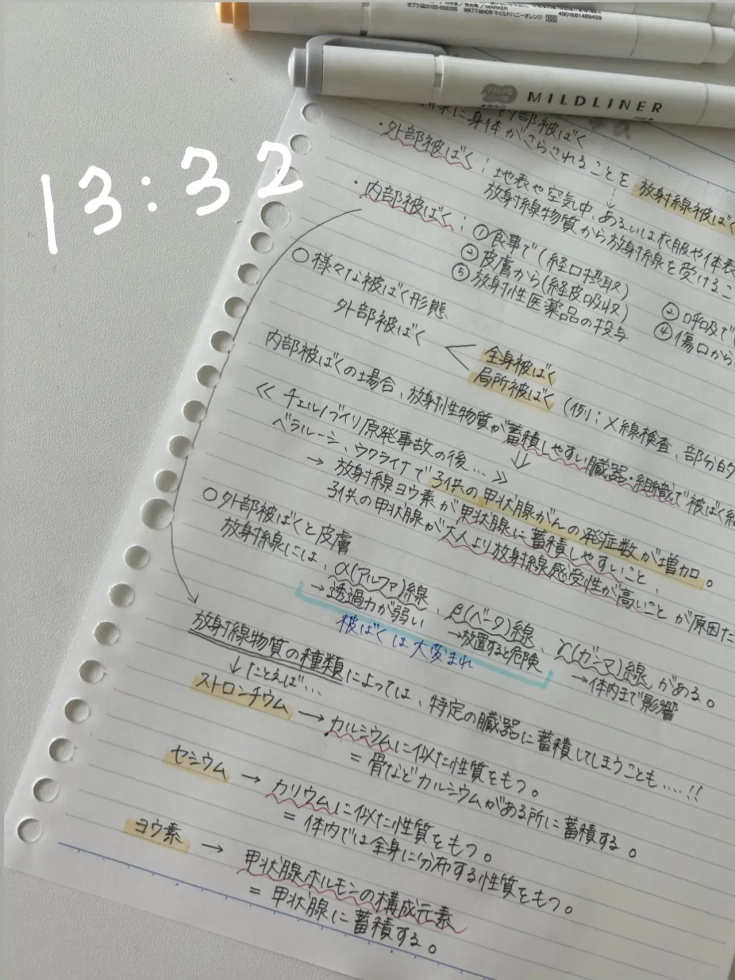 ゼブラ㈱0120-555335
WKT7-MHOR マイルドハニーオレンジ
4901681489459
MILDLINER
13:32
内部被ばく
に身体がさらされることを 放射線被ばく
・外部被ばく：地表や空気中、あるいは衣服や体表
放射線物質から放射線を受けるこ
・内部被ばく：①食事で(経口摂取)
②呼吸で
③皮膚から(経皮吸収)
④傷口から
⑤放射性医薬品の投与
○様々な被ばく形態
外部被ばく < 全身被ばく
局所被ばく (例：X線検査、部分的
内部被ばくの場合、放射性物質が蓄積しやすい臓器・組織で被ばく
↓
≪チェルノブイリ原発事故の後…≫
ベラルーシ、ウクライナで子供の甲状腺がんの発症数が増加。
→ 放射線ヨウ素が甲状腺に蓄積しやすいこと、
子供の甲状腺が大人より放射線感受性が高いことが原因
○外部被ばくと皮膚
放射線には、α(アルファ)線、β(ベータ)線、γ(ガンマ)線がある。
→透過力が弱い
→放置すると危険
→体内まで影響
被ばくは大変まれ
放射線物質の種類によっては、特定の臓器に蓄積してしまうことも……!!
↓たとえば…
ストロンチウム → カルシウムに似た性質をもつ。
＝骨などカルシウムがある所に蓄積する。
セシウム → カリウムに似た性質をもつ。
＝体内では全身に分布する性質をもつ。
ヨウ素 → 甲状腺ホルモンの構成元素
＝甲状腺に蓄積する。